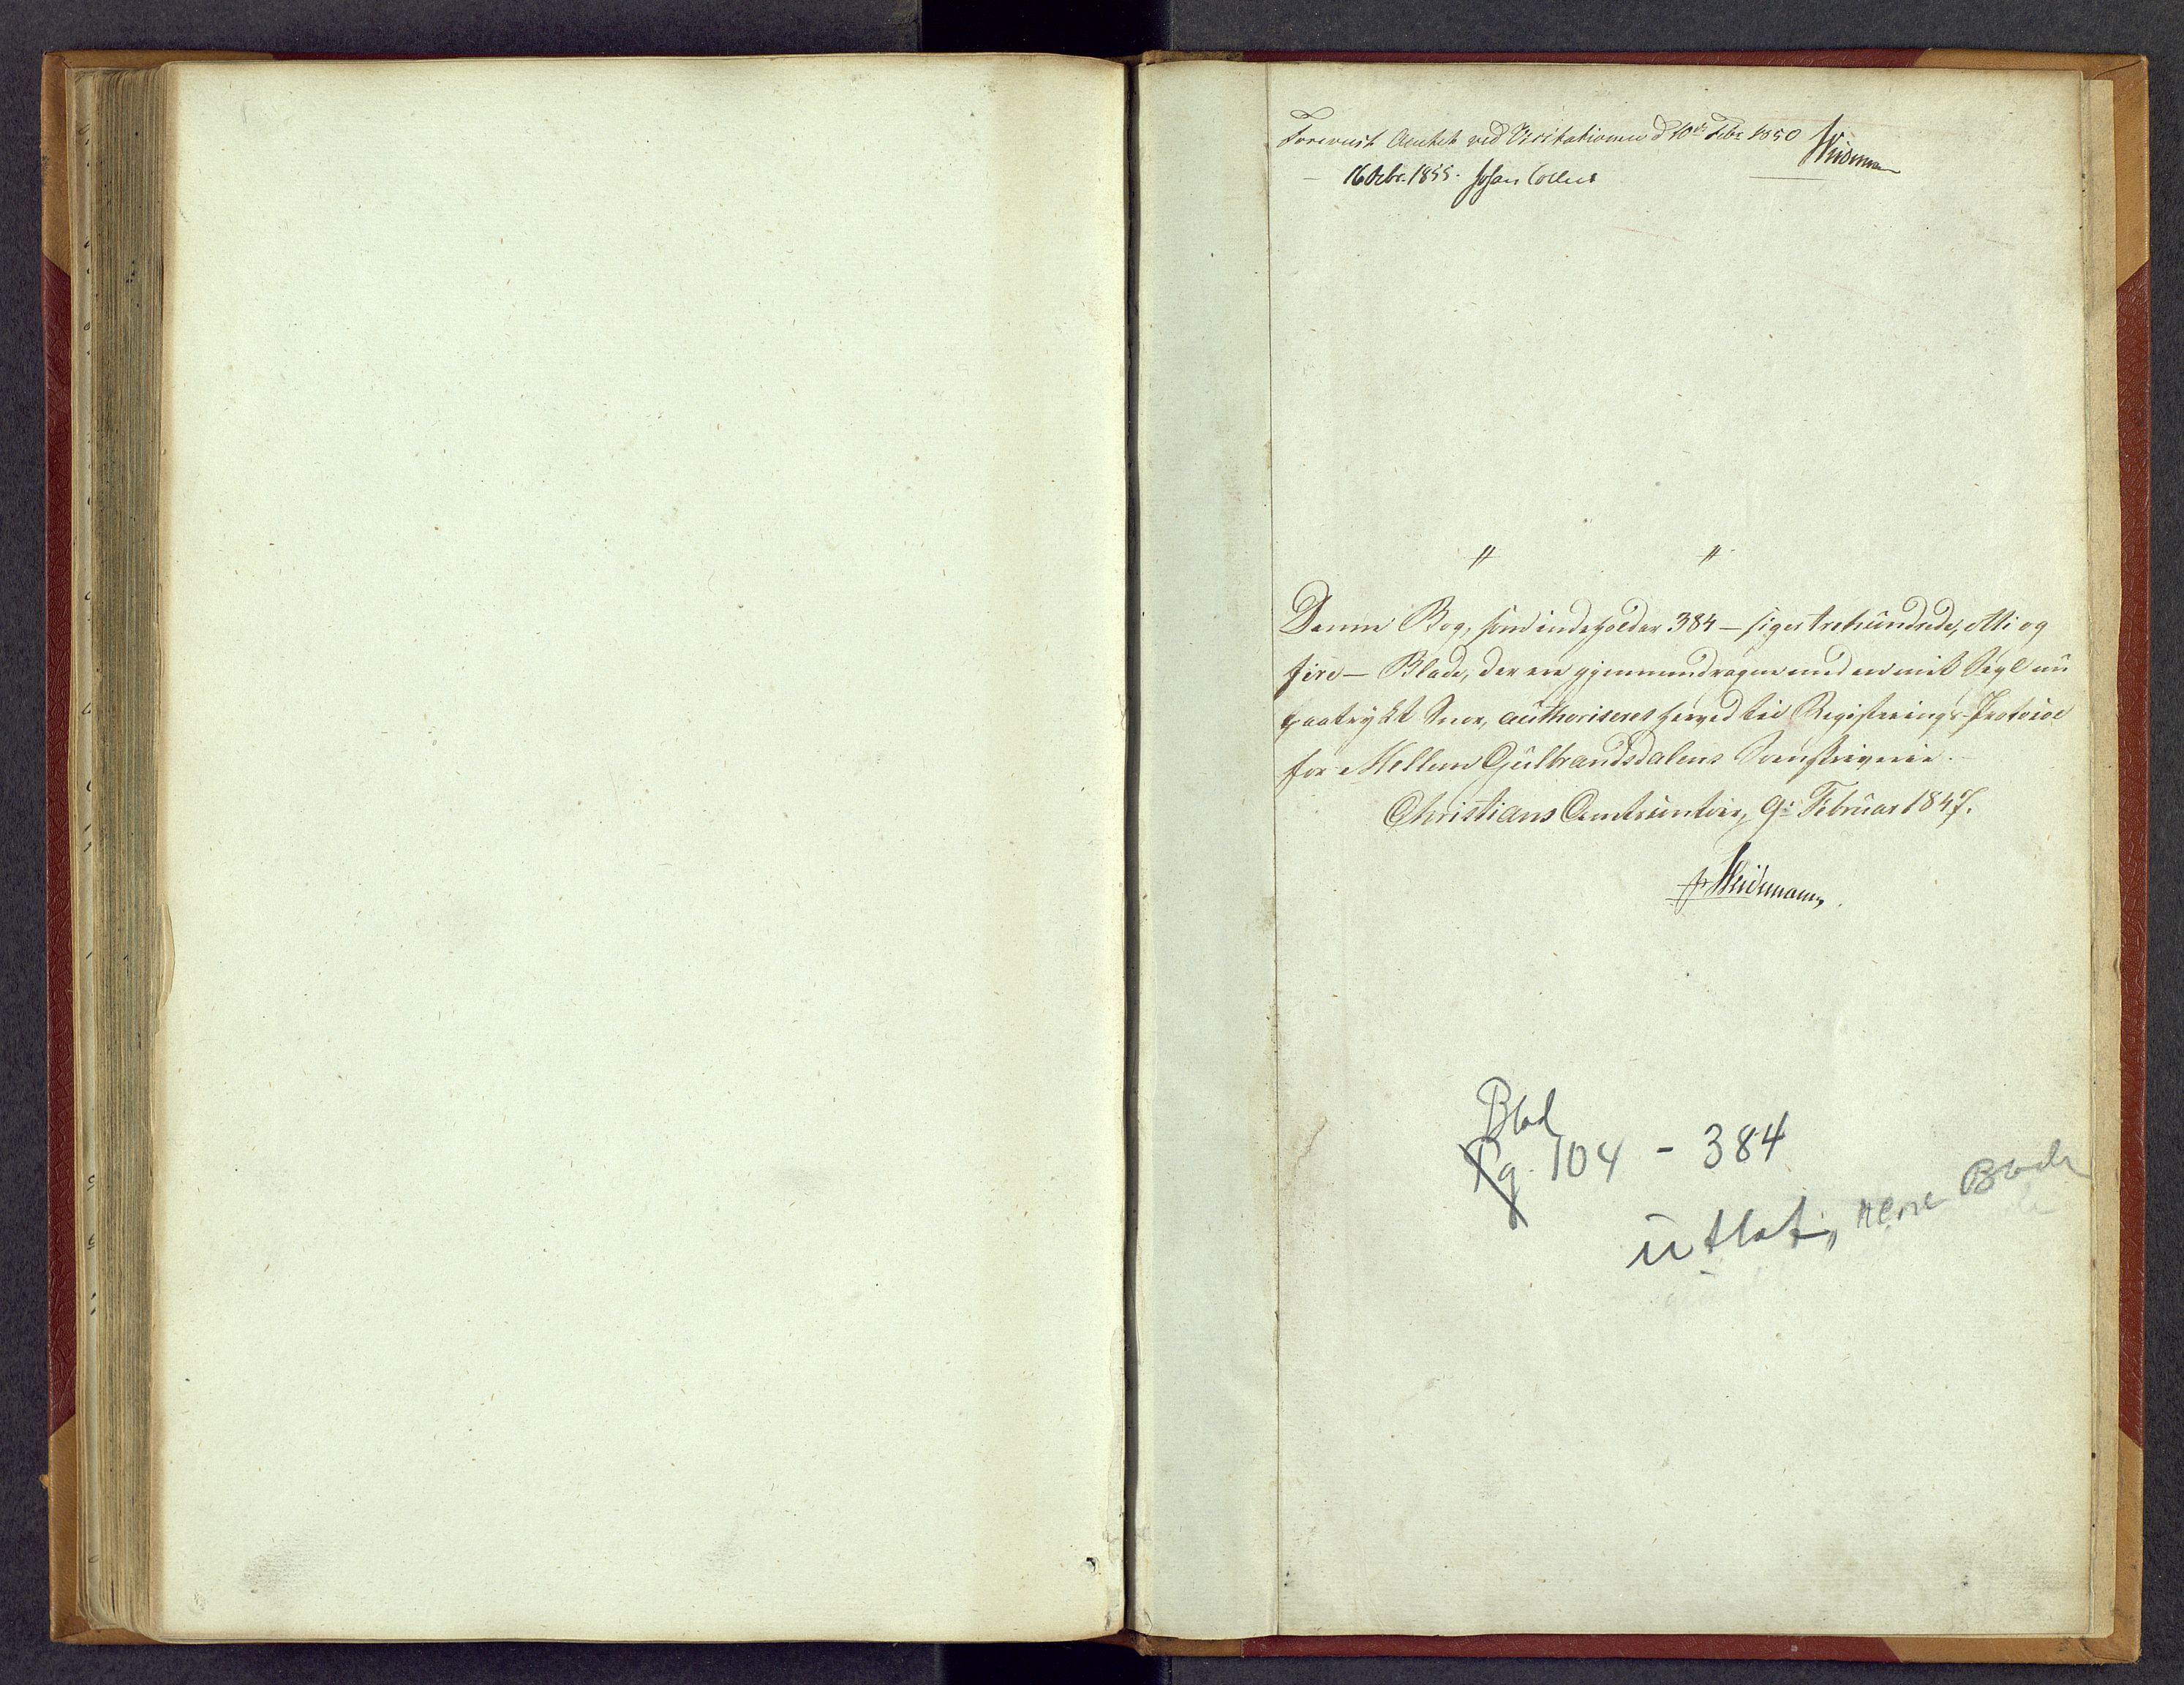 Foreviist Amtet ved Visitationen d 10de Febr 1850 Weidemann
— 16 Octbr. 1855. Johan Collett
〃 〃
Denne Bog, som indeholder 384 — siger trehundrede, otti og
fire — Blade, der ere gjennemdragne med en mit Segl
paatrykt Snor, authoriseres herved til Registrerings-Protocol
for Mellem Gulbrandsdalens Sorenskriverie.
Christians Amtscontoir, 9de Februar 1847.
Weidemann
Blad
Pg. 104 - 384
utlat, rene Blade